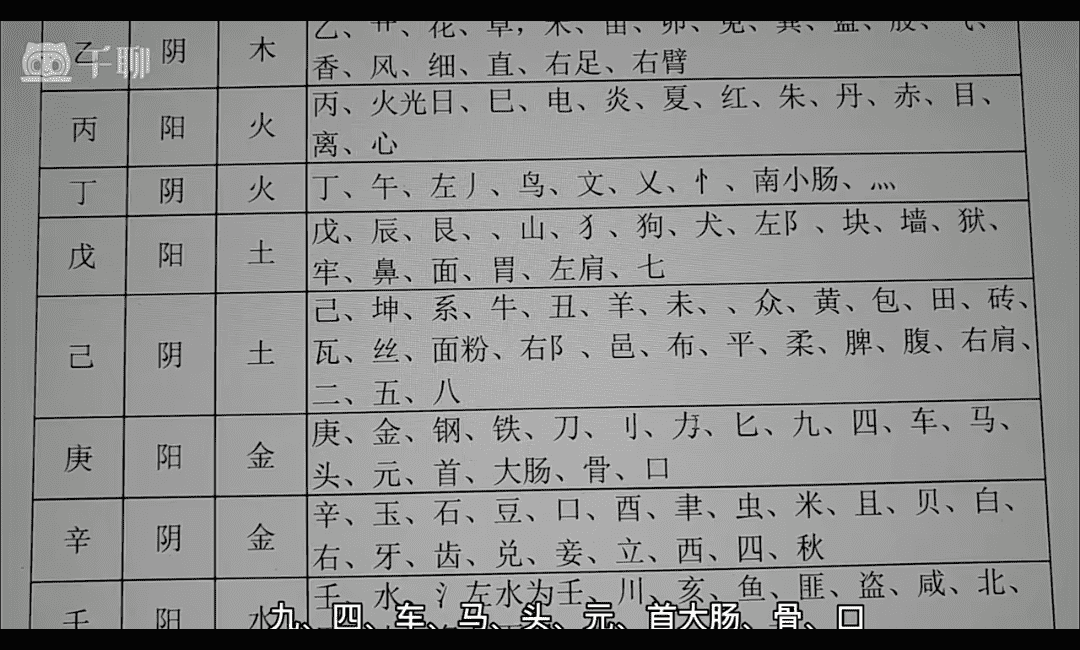 千聊
乙、艹、花、草，木、苗、卯、兔、巽、
乙 阴 木 香、风、细、直、右足、右臂
丙 阳 火 丙、火光日、巳、电、炎、夏、红、朱、丹、赤、目、
离、心
丁 阴 火 丁、午、左丿、鸟、文、乂、忄、南小肠、灬
戊 阳 土 戊、辰、艮、、山、犭、狗、犬、左阝、块、墙、狱、
牢、鼻、面、胃、左肩、七
己 阴 土 己、坤、系、牛、丑、羊、未、、众、黄、包、田、砖、
瓦、丝、面粉、右阝、邑、布、平、柔、脾、腹、右肩、
二、五、八
庚 阳 金 庚、金、钢、铁、刀、刂、匕、九、四、车、马、
头、元、首、大肠、骨、口
辛 阴 金 辛、玉、石、豆、口、酉、聿、虫、米、且、贝、白、
右、牙、齿、兑、妾、立、西、四、秋
壬 阳 水 壬、水、氵左水为壬、川、亥、鱼、匪、盗、咸、北、
九、四、车、马、头、元、首大肠、骨、口